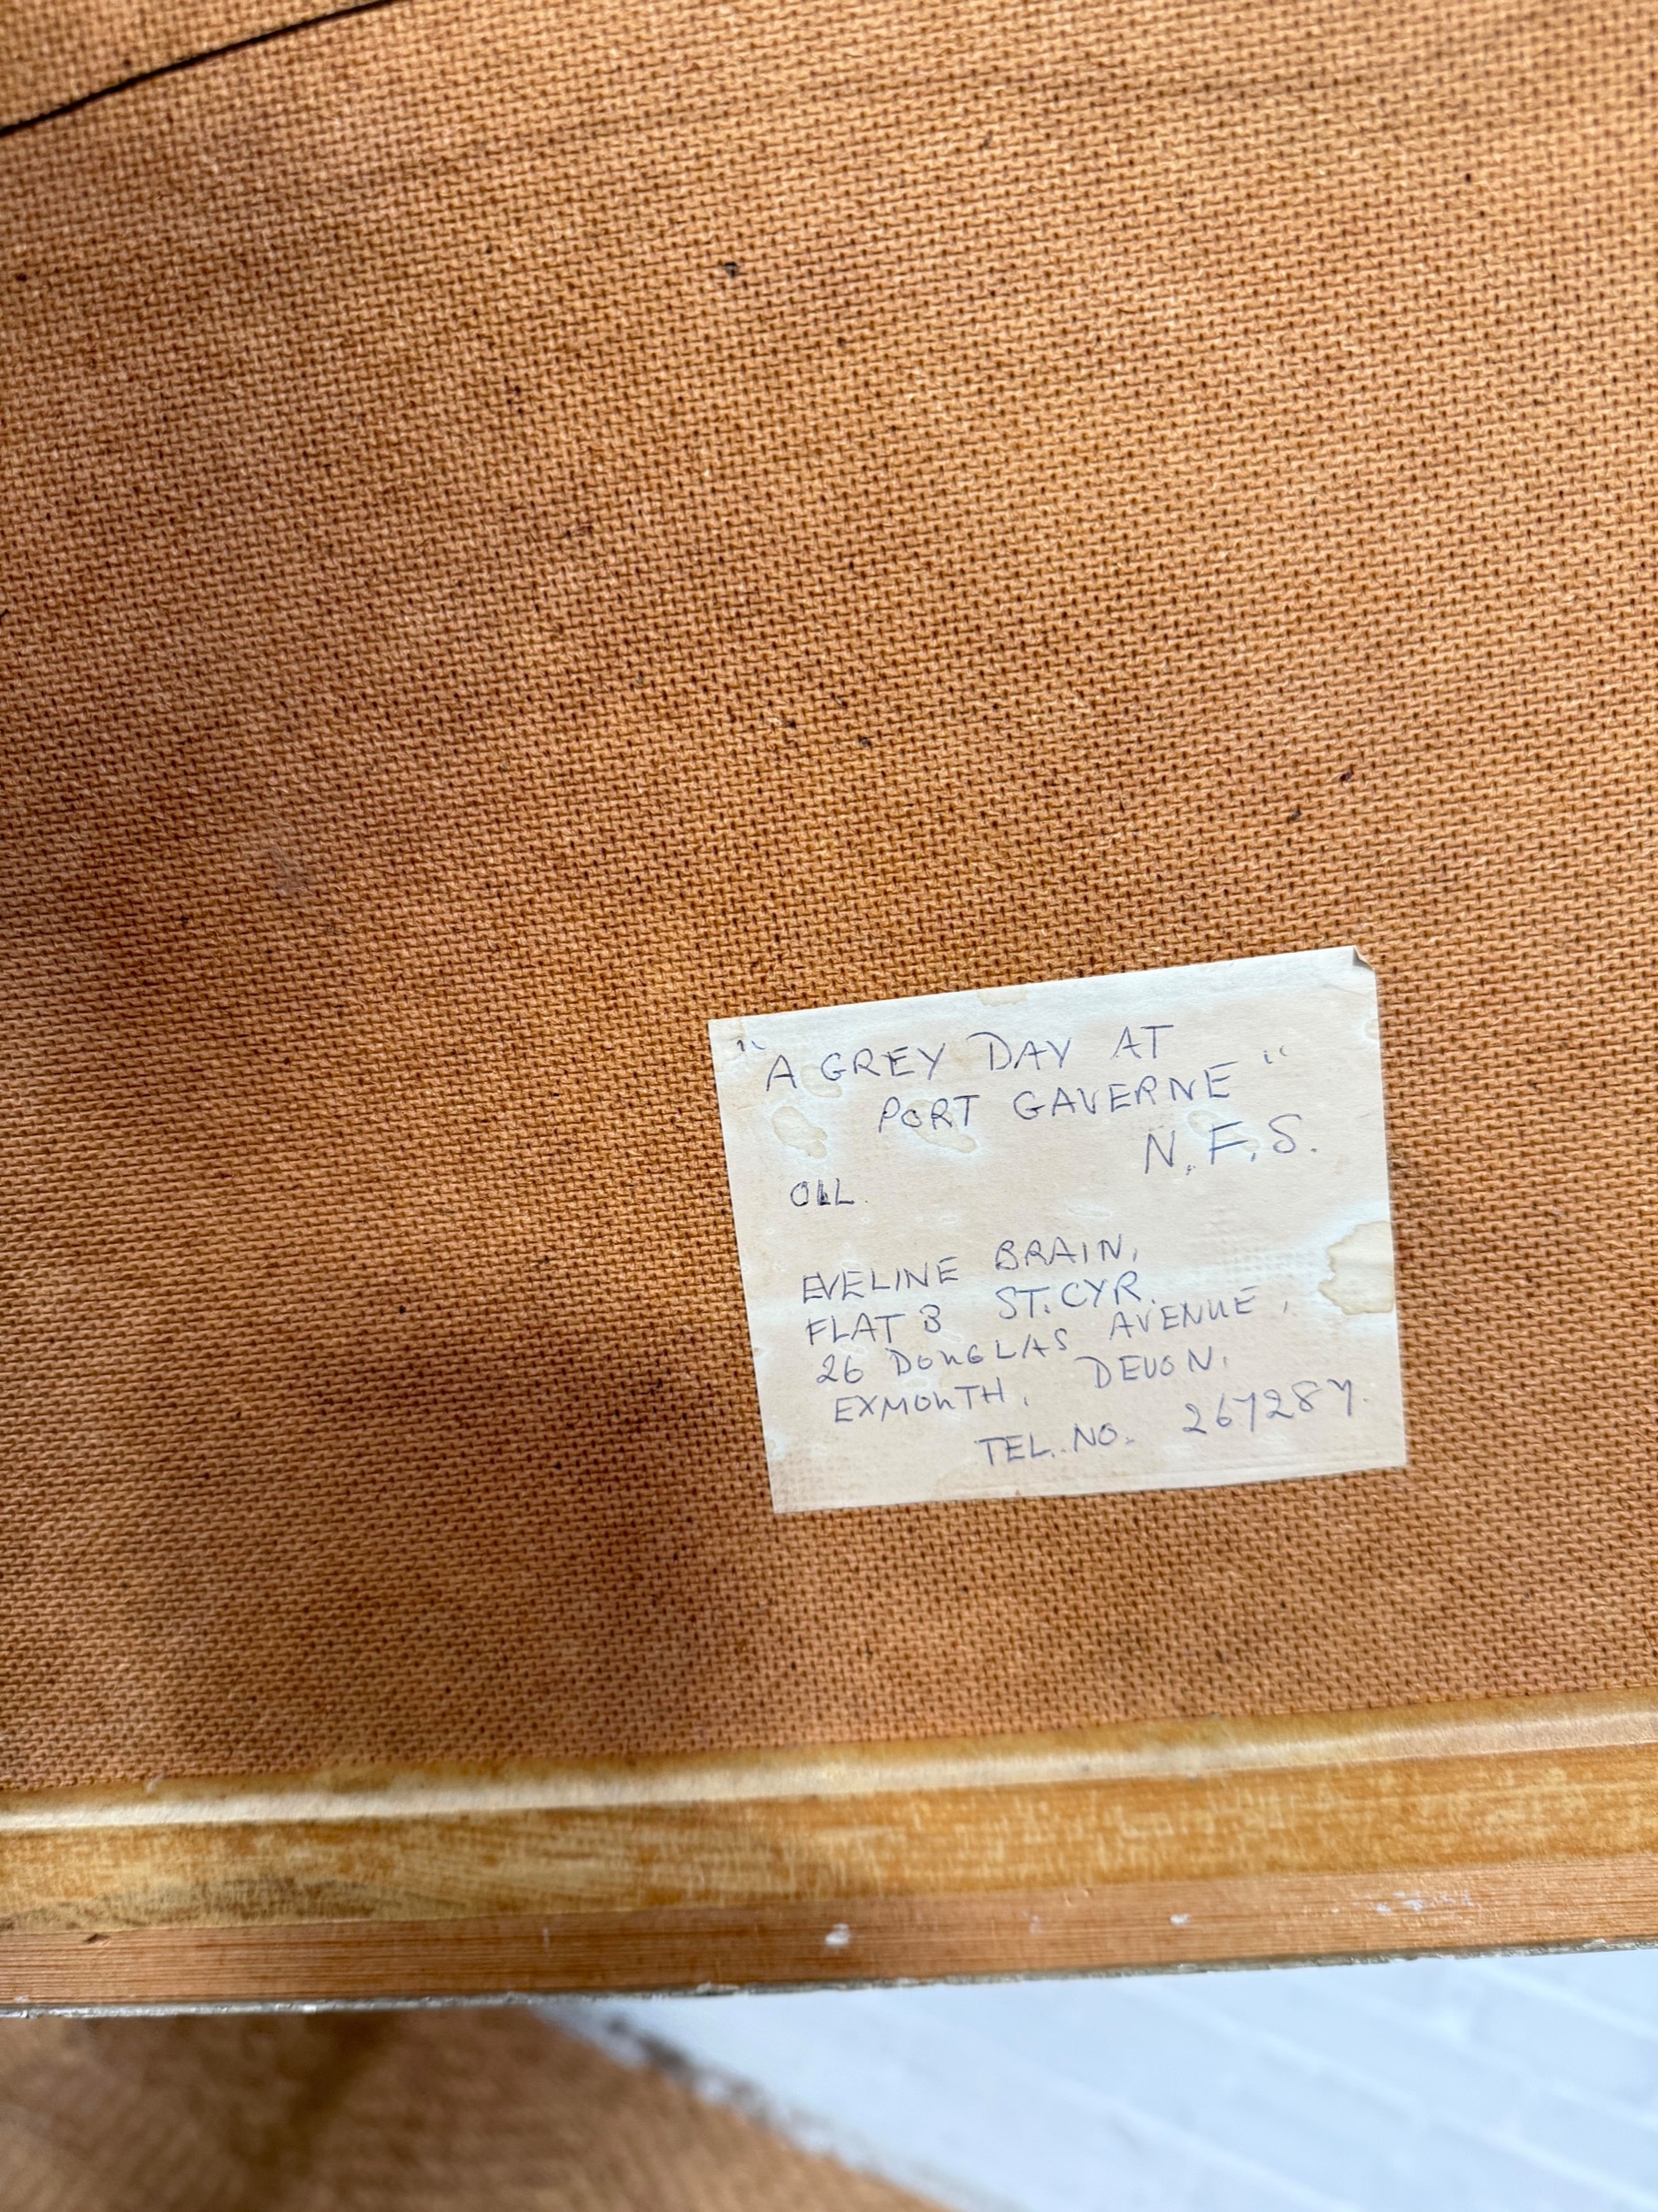 "A GREY DAY AT
PORT GAVERNE"
N.F.S.
OIL.
EVELINE BRAIN,
FLAT 3 ST. CYR.
26 DOUGLAS AVENUE,
EXMOUTH, DEVON.
TEL. NO. 267287.